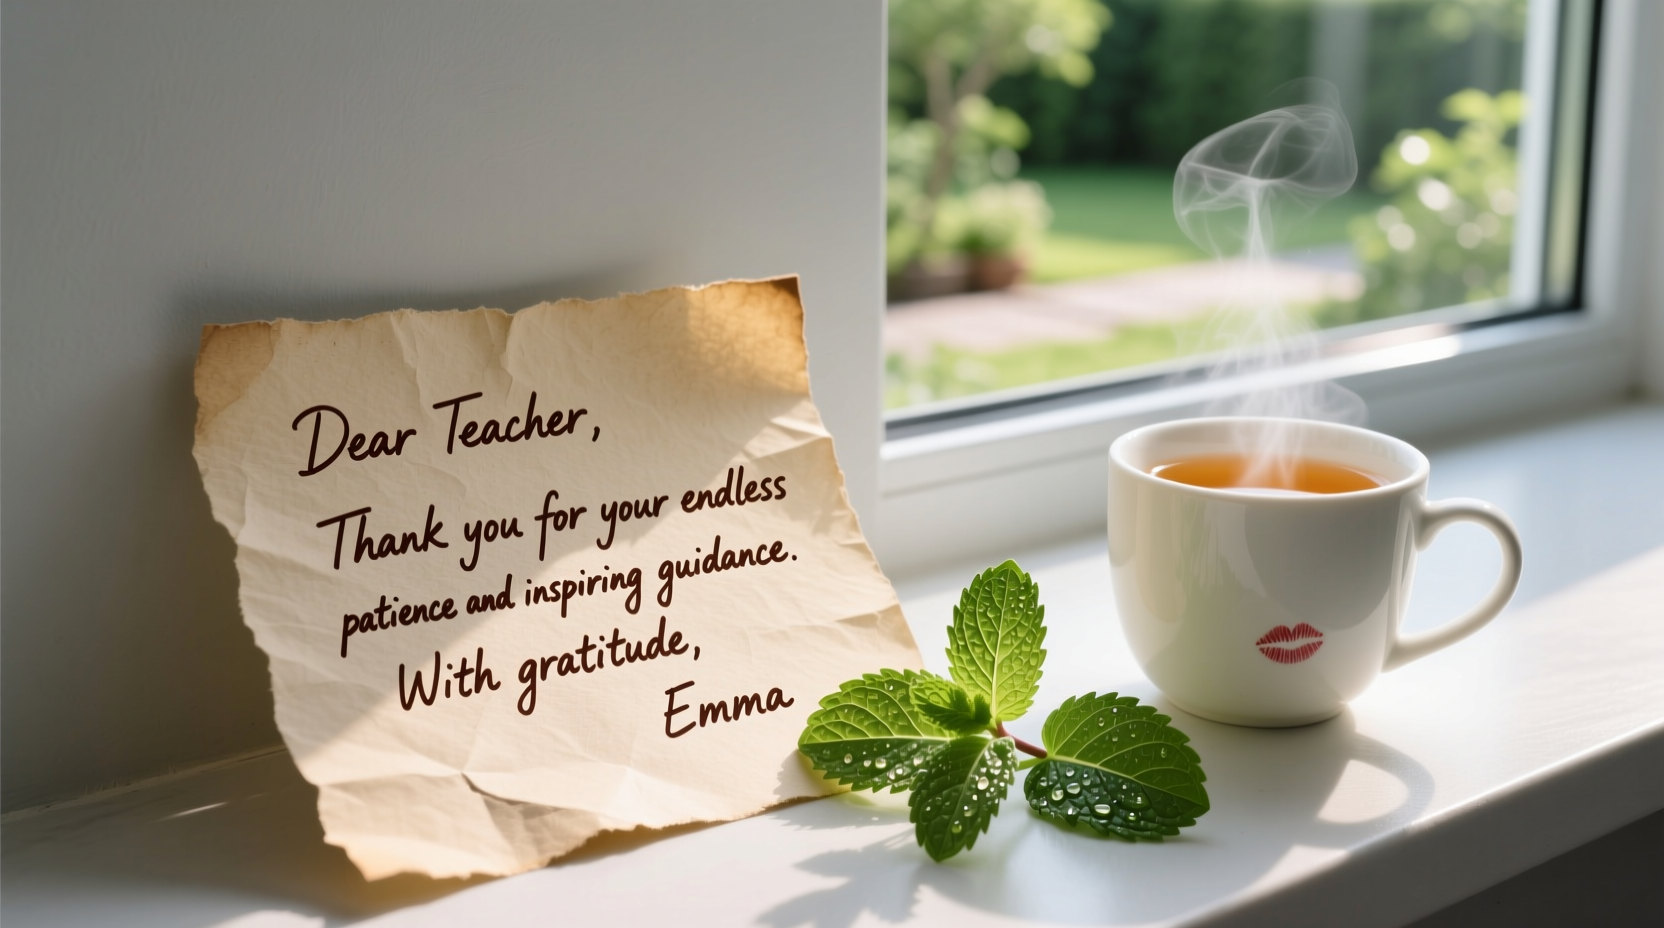 Dear Teacher,
Thank you for your endless
patience and inspiring guidance.
With gratitude,
Emma